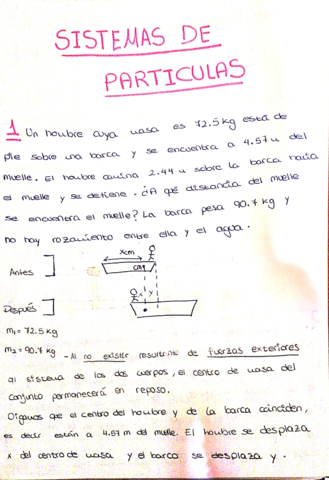 SISTEMAS DE
PARTICULAS
1 Un hombre cuya masa es 72.5 kg está de
pie sobre una barca y se encuentra a 4.57 m del
muelle. El hombre camina 2.44 m sobre la barca hacia
el muelle y se detiene. ¿A qué distancia del muelle
se encuentra el muelle? La barca pesa 90.7 kg y
no hay rozamiento entre ella y el agua.
Xcm
Antes
CM
Después
x y
m₁= 72.5 kg
m₂= 90.7 kg - Al no existir resultante de fuerzas exteriores
al sistema de los dos cuerpos, el centro de masa del
conjunto permanecerá en reposo.
Digamos que el centro del hombre y de la barca coinciden,
es decir están a 4.57 m del muelle. El hombre se desplaza
x del centro de masa y el barco se desplaza y.